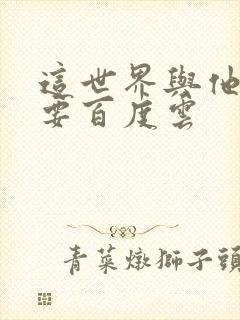 這世界與他
要百度雲
青菜燉獅子頭